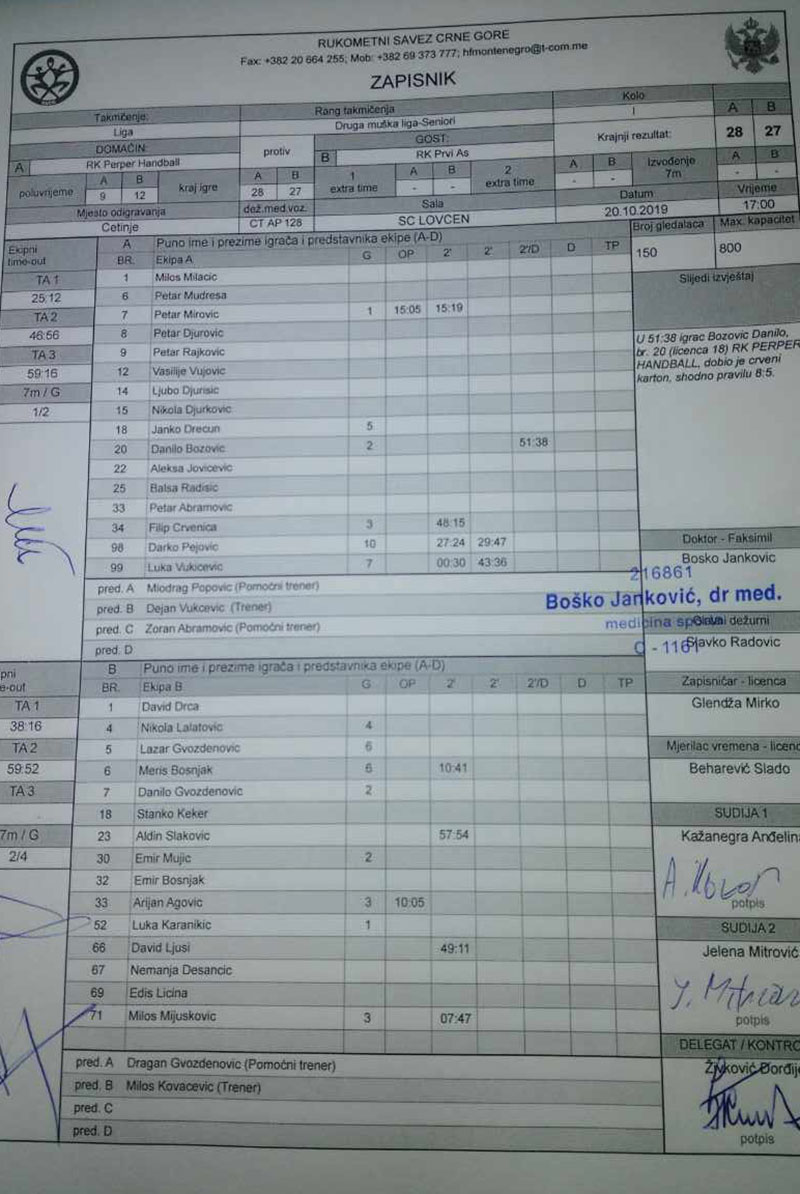 RUKOMETNI SAVEZ CRNE GORE
Fax: +382 20 664 255; Mob: +382 69 373 777; hfmontenegro@t-com.me
ZAPISNIK
Takmičenje: Rang takmičenja Kolo A B
Liga Druga muška liga-Seniori I
DOMAĆIN: protiv GOST: Krajnji rezultat: 28 27
A RK Perper Handball B RK Prvi As
poluvrijeme A B kraj igre A B 1 extra time A B 2 extra time A B Izvođenje 7m A B
9 12 28 27 - - - - - -
Mjesto odigravanja dež.med.voz. Sala Datum Vrijeme
Cetinje CT AP 128 SC LOVCEN 20.10.2019 17:00
Ekipni time-out A Puno ime i prezime igrača i predstavnika ekipe (A-D) Broj gledalaca Max. kapacitet
BR. Ekipa A G OP 2' 2' 2'/D D TP 150 800
TA 1 1 Milos Milacic Slijedi izvještaj
25:12 6 Petar Mudresa
TA 2 7 Petar Mirovic 1 15:05 15:19
46:56 8 Petar Djurovic
TA 3 9 Petar Rajkovic
59:16 12 Vasilije Vujovic
7m / G 14 Ljubo Djurisic
1/2 15 Nikola Djurkovic
U 51:38 igrac Bozovic Danilo,
br. 20 (licenca 18) RK PERPER
HANDBALL, dobio je crveni
karton, shodno pravilu 8:5.
18 Janko Drecun 5
20 Danilo Bozovic 2 51:38
22 Aleksa Jovicevic
25 Balsa Radisic
33 Petar Abramovic
34 Filip Crvenica 3 48:15
98 Darko Pejovic 10 27:24 29:47
99 Luka Vukicevic 7 00:30 43:36
pred. A Miodrag Popovic (Pomoćni trener)
pred. B Dejan Vukcevic (Trener)
pred. C Zoran Abramovic (Pomoćni trener)
pred. D
Doktor - Faksimil
Bosko Jankovic
216861
Boško Janković, dr med.
medicina
dežurni
Slavko Radovic
B Puno ime i prezime igrača i predstavnika ekipe (A-D)
BR. Ekipa B G OP 2' 2' 2'/D D TP
TA 1 1 David Drca
38:16 4 Nikola Lalatovic 4
TA 2 5 Lazar Gvozdenovic 6
59:52 6 Meris Bosnjak 6 10:41
TA 3 7 Danilo Gvozdenovic 2
18 Stanko Keker
7m / G 23 Aldin Slakovic 57:54
2/4 30 Emir Mujic 2
32 Emir Bosnjak
33 Arijan Agovic 3 10:05
52 Luka Karanikic 1
66 David Ljusi 49:11
67 Nemanja Desancic
69 Edis Licina
71 Milos Mijuskovic 3 07:47
pred. A Dragan Gvozdenovic (Pomoćni trener)
pred. B Milos Kovacevic (Trener)
pred. C
pred. D
Zapisničar - licenca
Glendža Mirko
Mjerilac vremena - licenc
Beharević Slado
SUDIJA 1
Kažanegra Anđelin
potpis
SUDIJA 2
Jelena Mitrović
potpis
DELEGAT / KONTRO
Živković Đorđije
potpis